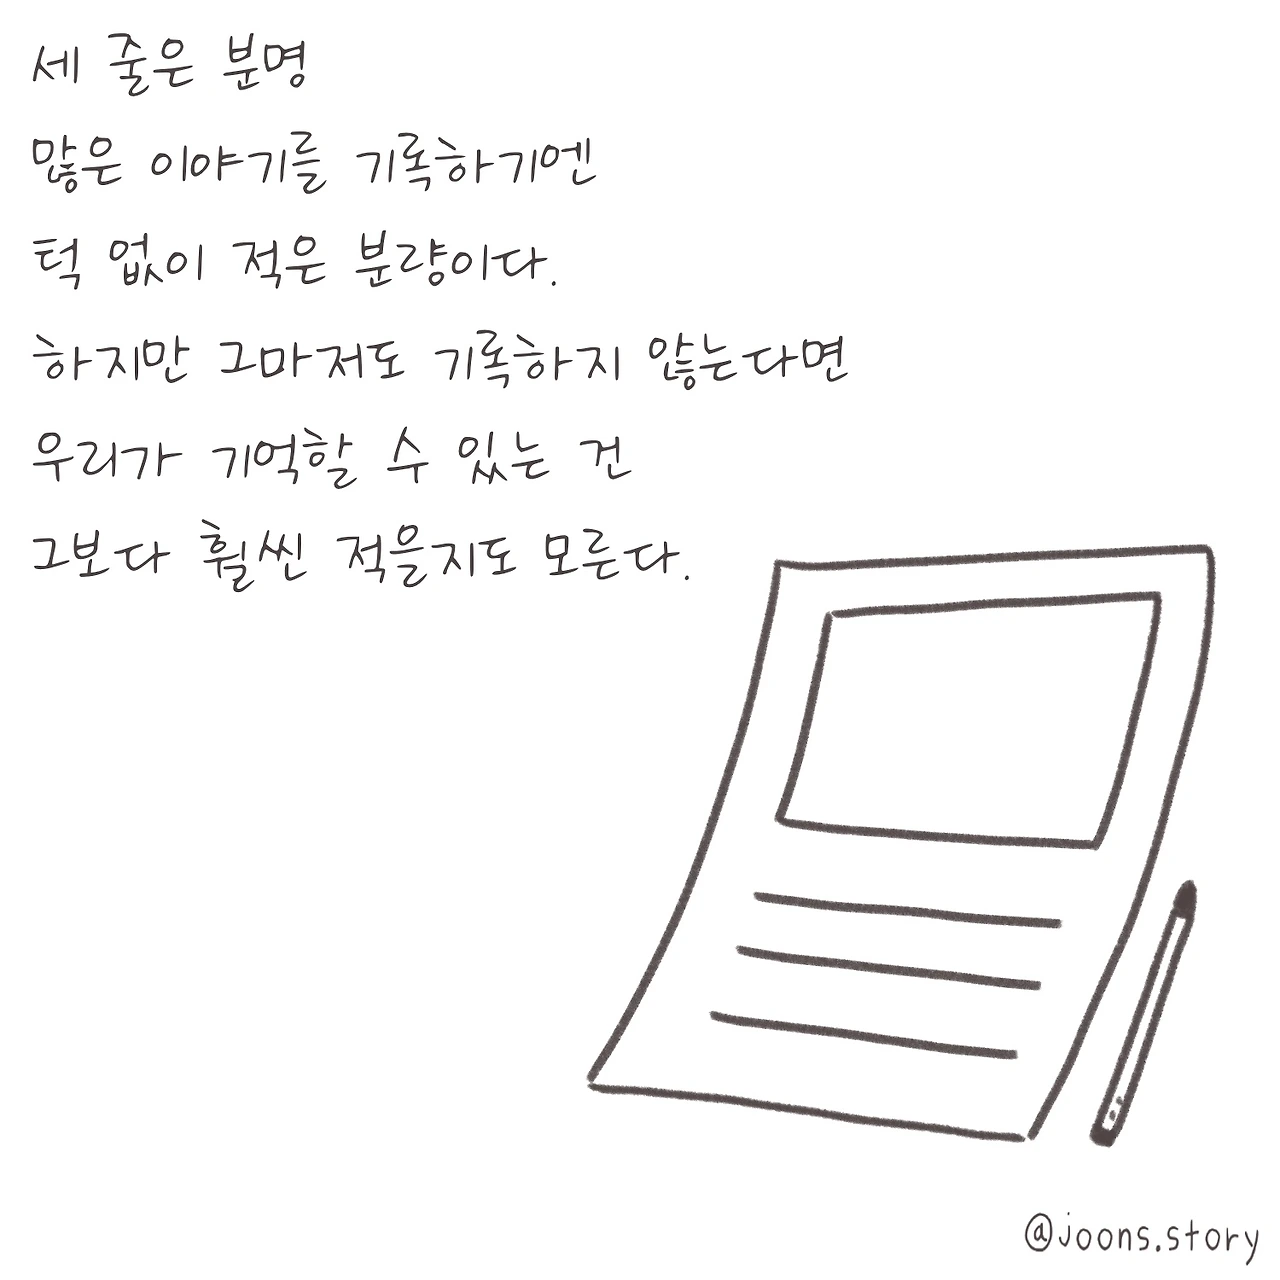 세 줄은 분명
많은 이야기를 기록하기엔
턱 없이 적은 분량이다.
하지만 그마저도 기록하지 않는다면
우리가 기억할 수 있는 건
그보다 훨씬 적을지도 모른다.
@joons.story